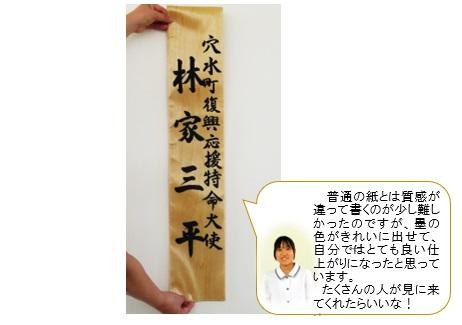 穴水町復興応援特命大使
林家三平
普通の紙とは質感が
違って書くのが少し難し
かったのですが、墨の
色がきれいに出せて、
自分ではとても良い仕
上がりになったと思って
います。
たくさんの人が見に来
てくれたらいいな！